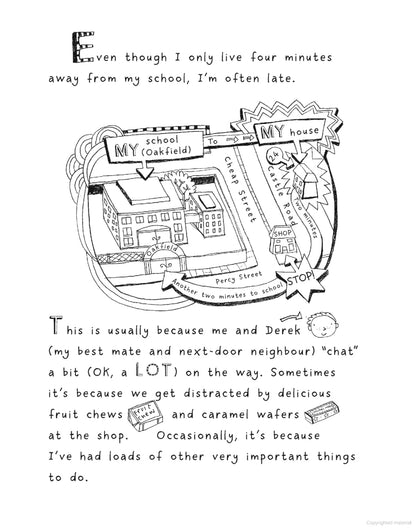 Even though I only live four minutes
away from my school, I'm often late.
MY school
(Oakfield)
To
MY house
24
Castle Road
Cheap Street
Two minutes
SHOP
Oakfield
Percy Street
Another two minutes to school
STOP!
This is usually because me and Derek
(my best mate and next-door neighbour) "chat"
a bit (OK, a LOT) on the way. Sometimes
it's because we get distracted by delicious
fruit chews
FRUIT
CHEWS
and caramel wafers
at the shop. Occasionally, it's because
I've had loads of other very important things
to do.
Copyrighted material